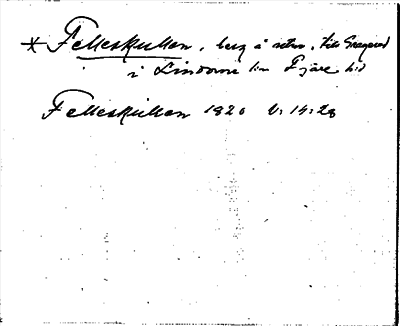 * Felleskullen, berg å retn. till Gragered
i Lindome sn Fjäre hd
Felleskullen 1820 V: 14:28